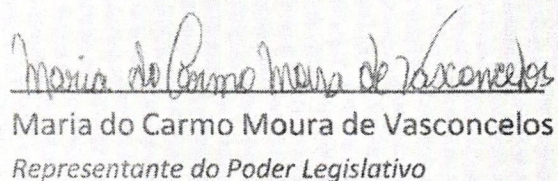 Maria do Carmo Moura de Vasconcelos
Maria do Carmo Moura de Vasconcelos
Representante do Poder Legislativo